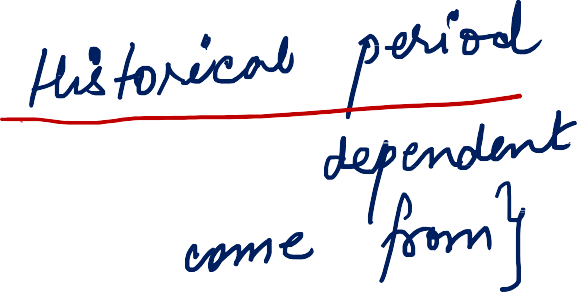 Historical period
dependent
come from}